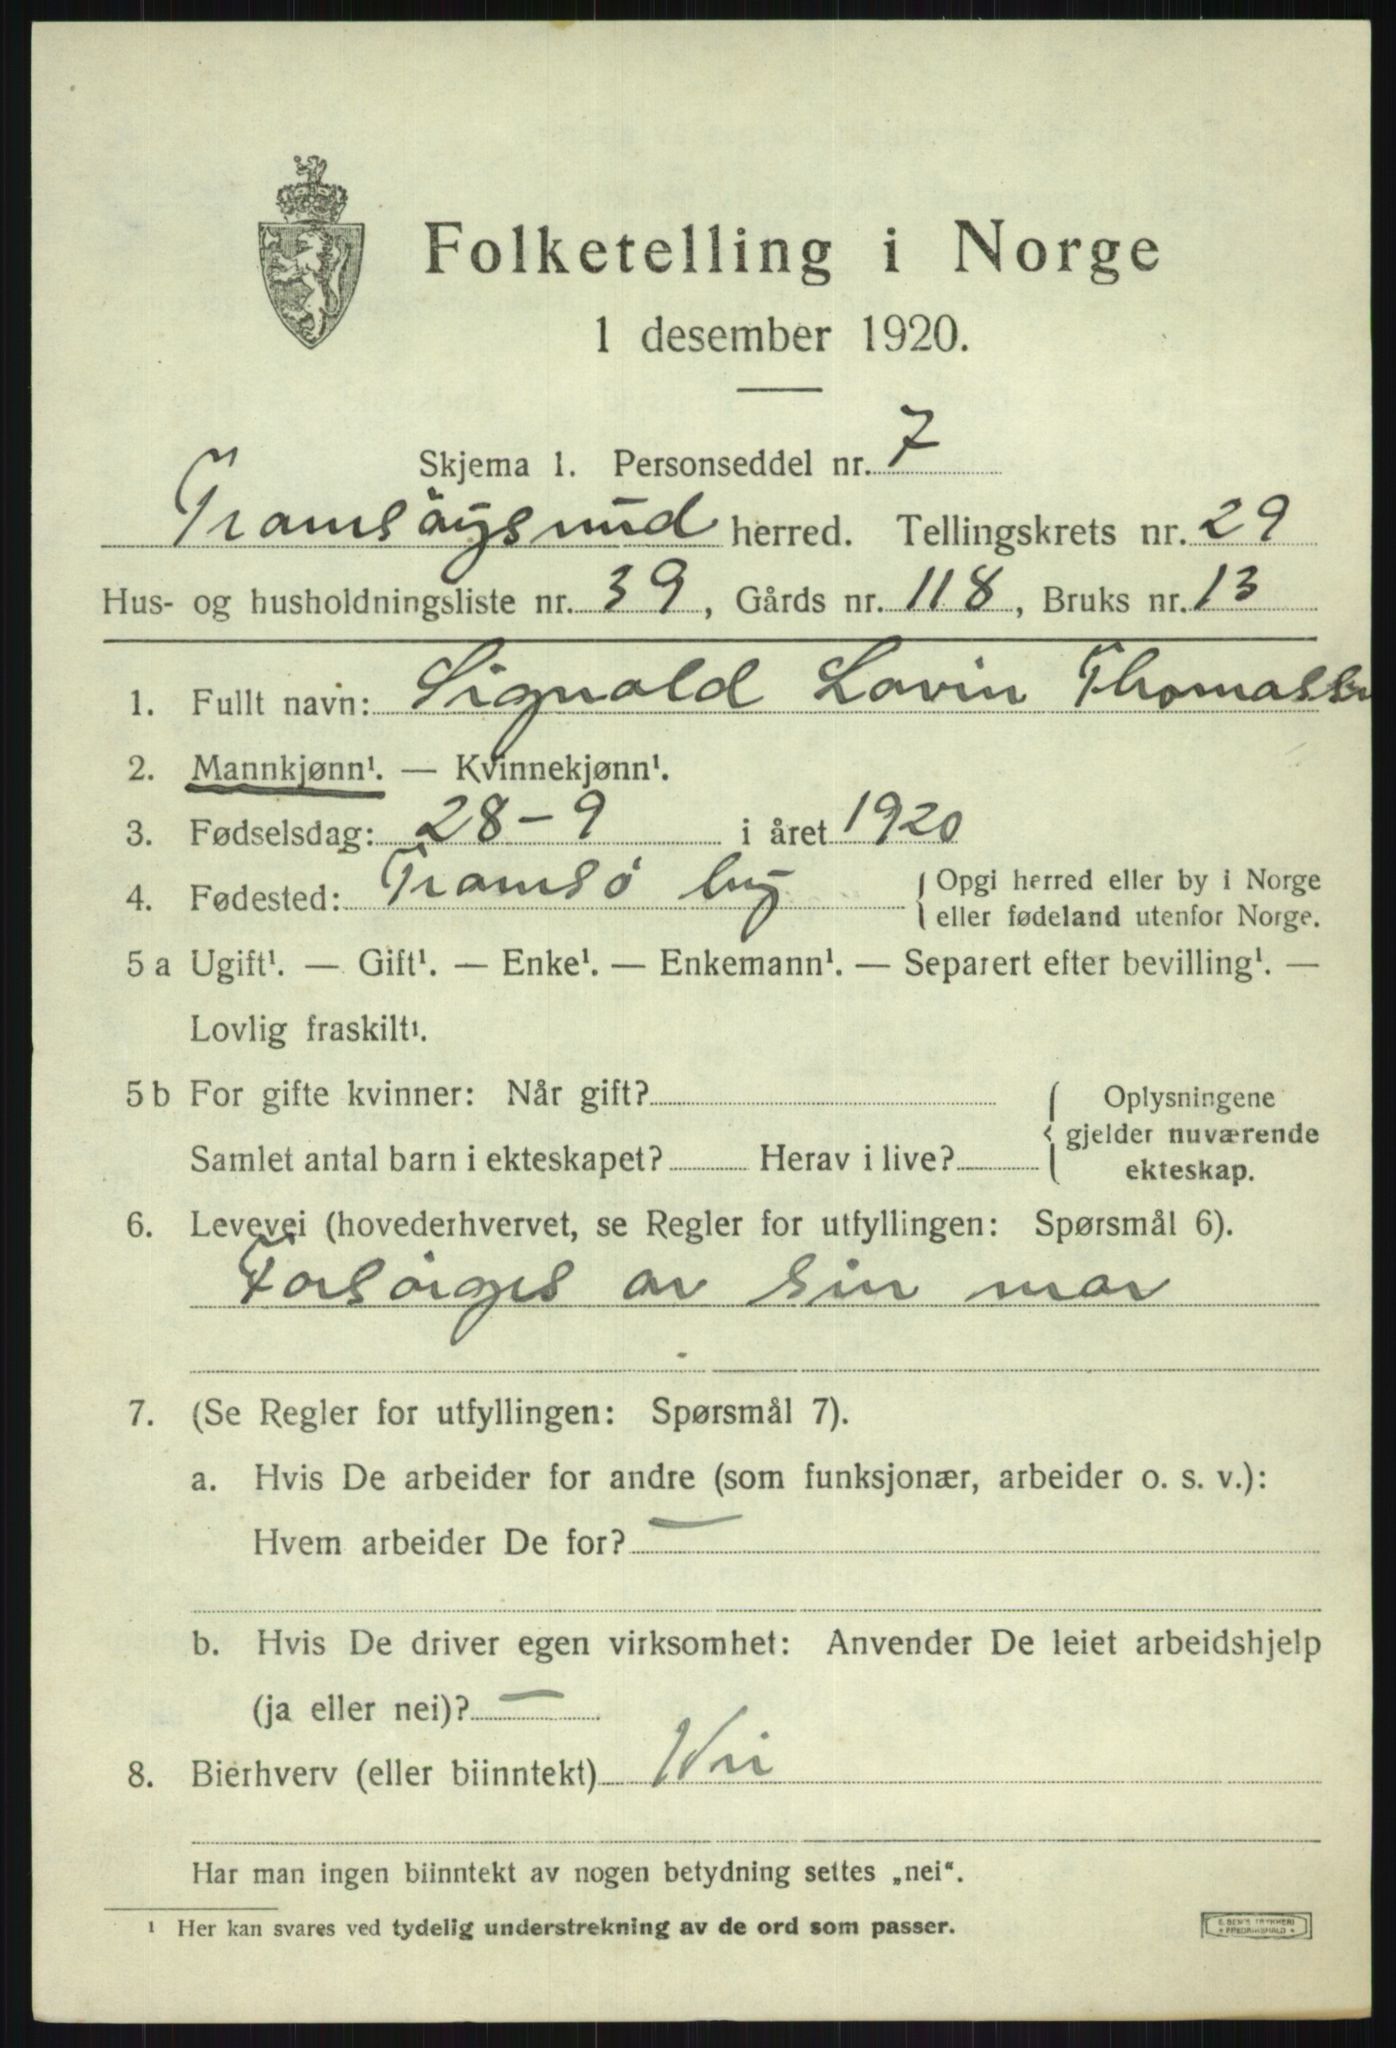 Folketelling i Norge
1 desember 1920.
Skjema 1. Personseddel nr. 7
Tromsöysund herred. Tellingskrets nr. 29
Hus- og husholdningsliste nr. 39, Gårds nr. 118, Bruks nr. 13
1. Fullt navn: Signald Lovin Thomassen
2. Mannkjønn¹. — Kvinnekjønn¹.
3. Fødselsdag: 28-9 i året 1920
4. Fødested: Tromsö by { Opgi herred eller by i Norge
eller fødeland utenfor Norge.
5 a Ugift¹. — Gift¹. — Enke¹. — Enkemann¹. — Separert efter bevilling¹. —
Lovlig fraskilt¹.
5 b For gifte kvinner: Når gift?
Samlet antal barn i ekteskapet? Herav i live?
{ Oplysningene
gjelder nuværende
ekteskap.
6. Levevei (hovederhvervet, se Regler for utfyllingen: Spørsmål 6).
Forsörges av sin mor
7. (Se Regler for utfyllingen: Spørsmål 7).
a. Hvis De arbeider for andre (som funksjonær, arbeider o. s. v.):
Hvem arbeider De for? —
b. Hvis De driver egen virksomhet: Anvender De leiet arbeidshjelp
(ja eller nei)? —
8. Bierhverv (eller biinntekt) Nei
Har man ingen biinntekt av nogen betydning settes „nei“.
¹ Her kan svares ved tydelig understrekning av de ord som passer.
E. SEM'S TRYKKERI
• FREDRIKSHALD •